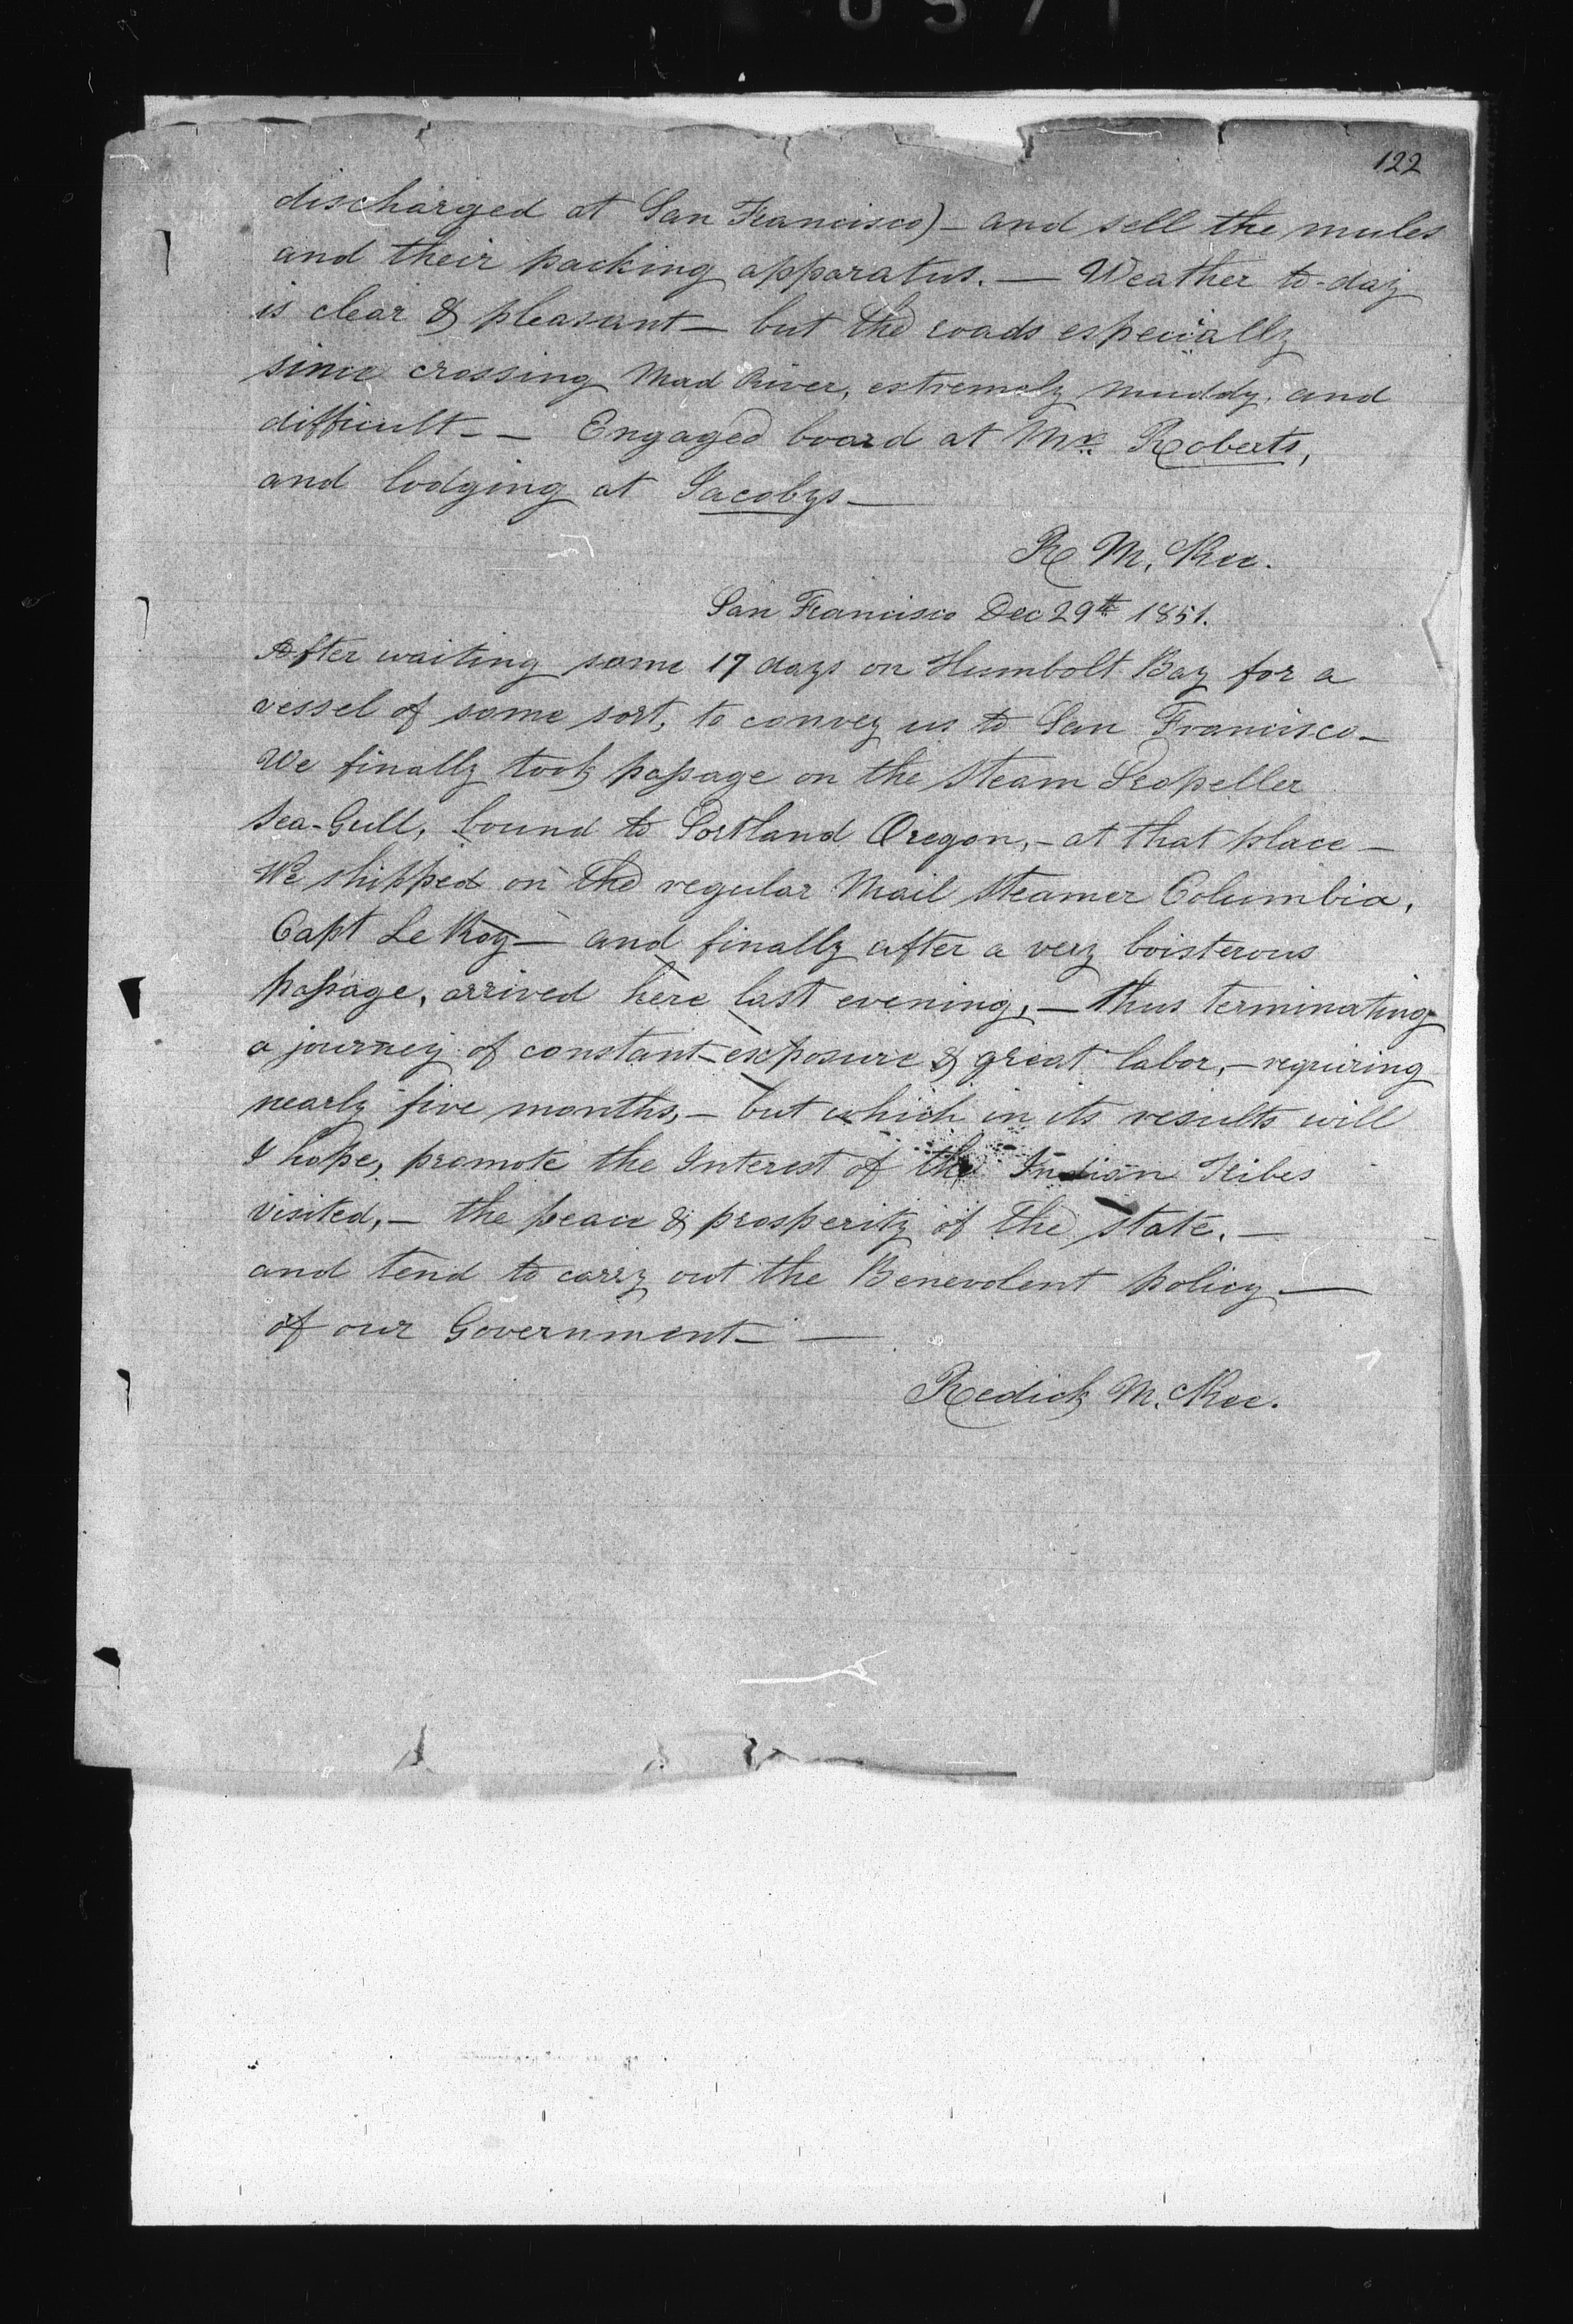 122
discharged at San Francisco) - and sell the mules
and their packing apparatus. — Weather to-day
is clear & pleasant - but the roads especially
since crossing Mad River, extremely muddy, and
difficult - - Engaged board at Mr. Roberts,
and lodging at Jacobys -
R M. Kee.
San Francisco Dec 29th 1851.
After waiting some 17 days on Humbolt Bay for a
vessel of some sort, to convey us to San Francisco -
We finally took passage on the Steam Propeller
Sea-Gull, bound to Portland Oregon, - at that place -
We shipped on the regular Mail Steamer Columbia,
Capt Le Roy - and finally after a very boisterous
passage, arrived here last evening, - thus terminating
a journey of constant exposure & great labor, - requiring
nearly five months, - but which in its results will
I hope, promote the Interest of the Indian Tribes
visited, - the peace & prosperity of the State. -
and tend to carry out the Benevolent policy —
of our Government - —
Redick M. Kee.